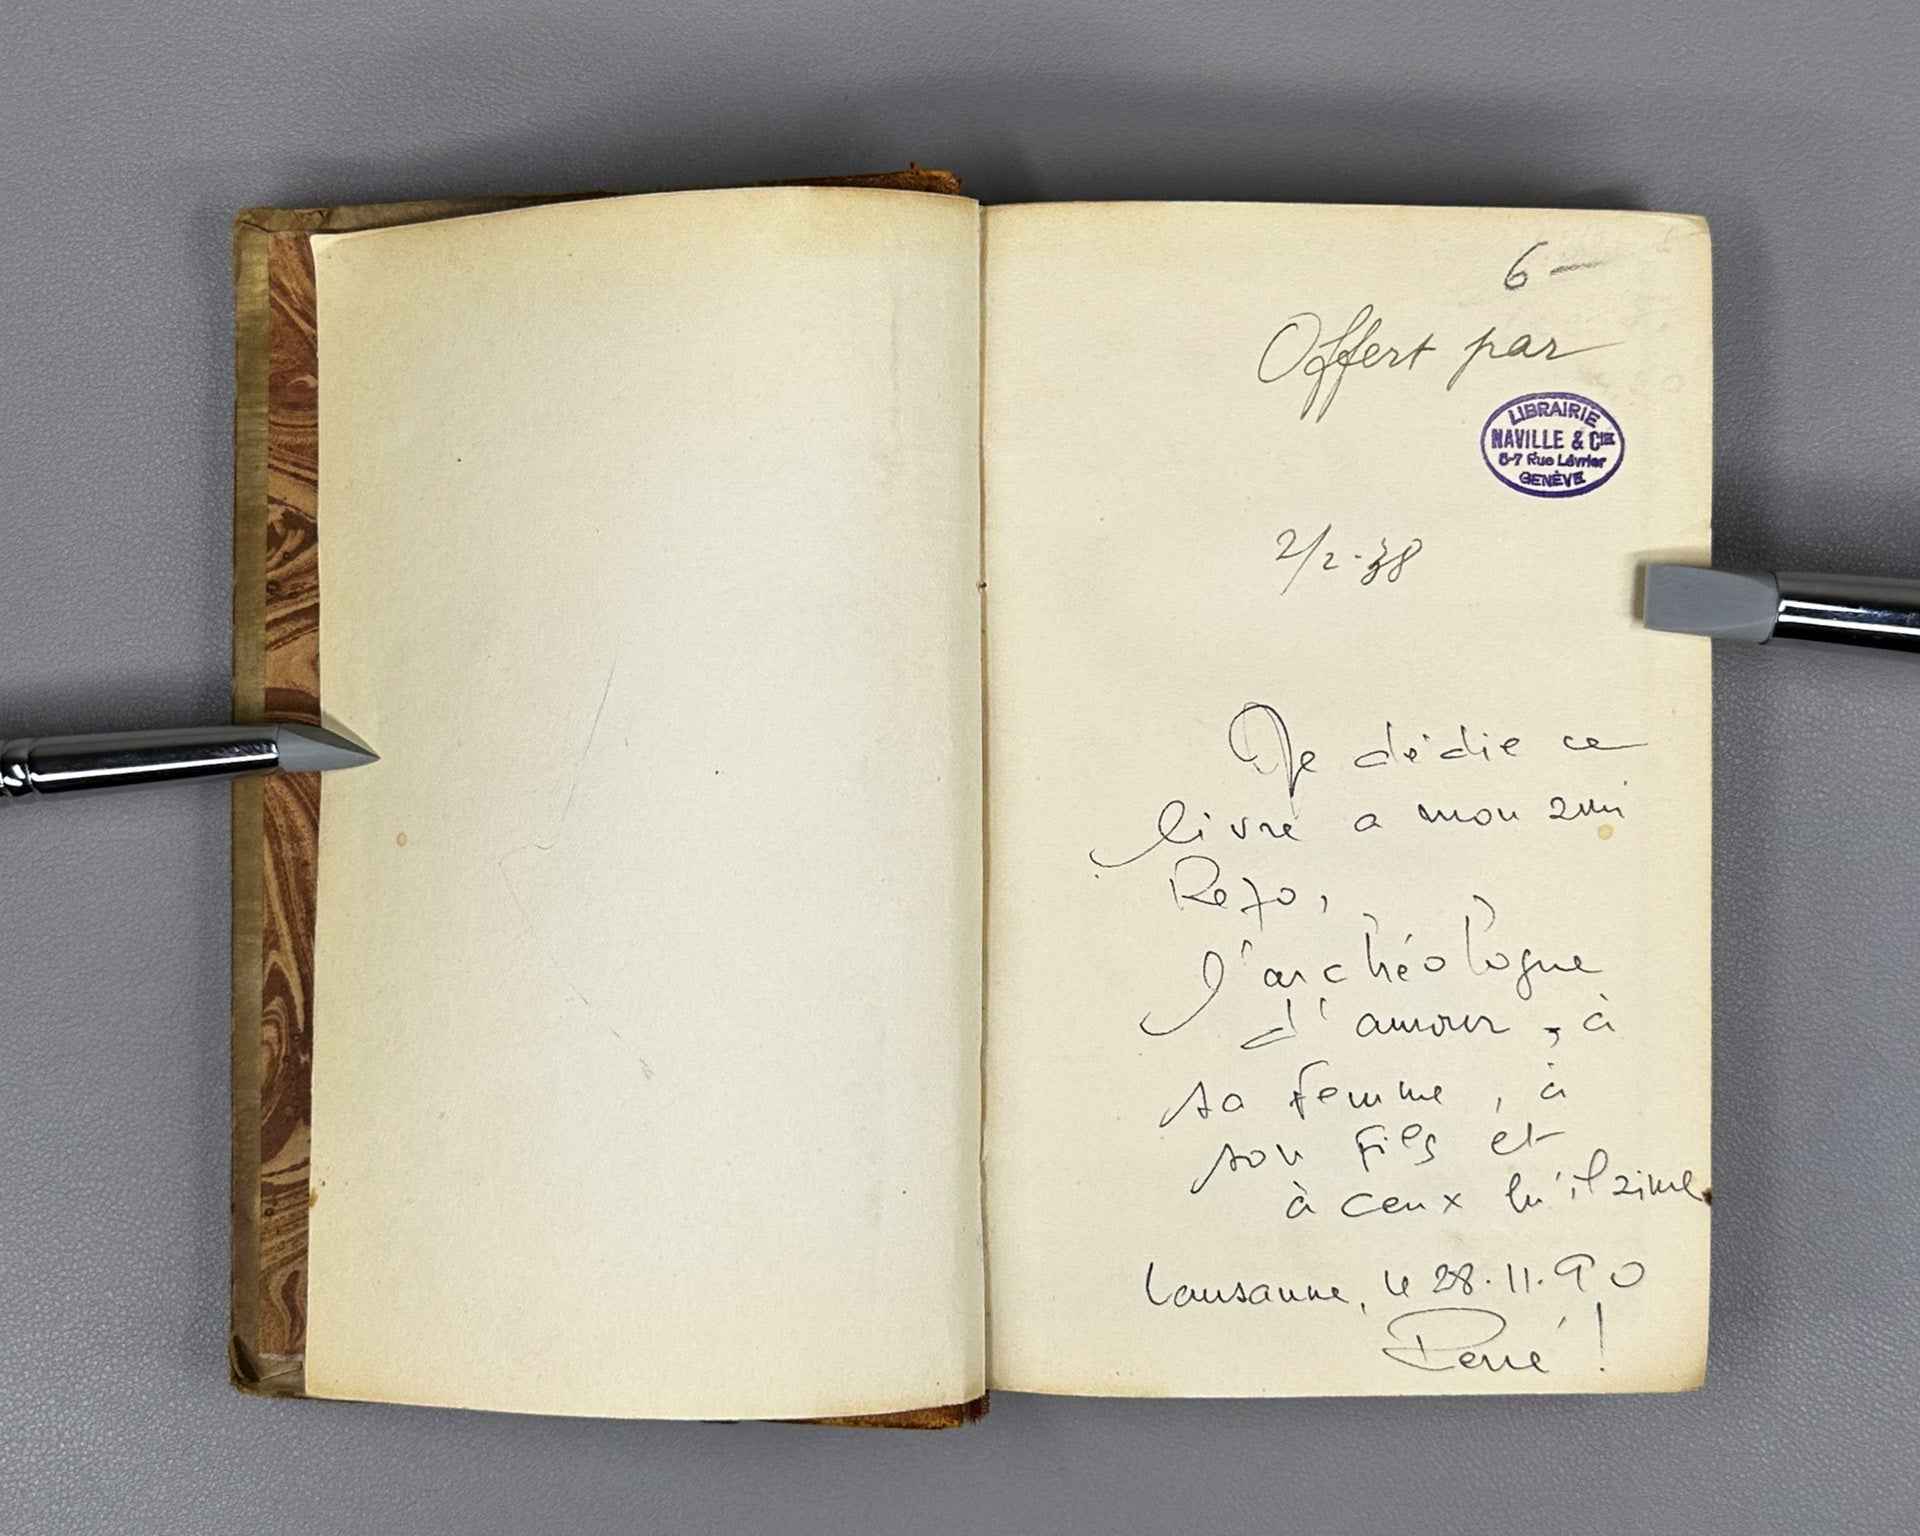 6 –
Offert par
LIBRAIRIE
NAVILLE & CIE
5-7 Rue Lévrier
GENÈVE
2/2.38
Je dédie ce
livre a mon ami
Rezo,
l'archéologue
d'amour, à
sa femme, à
son fils et
à ceux qu'il aime
Lausanne, le 28.11.90
René !